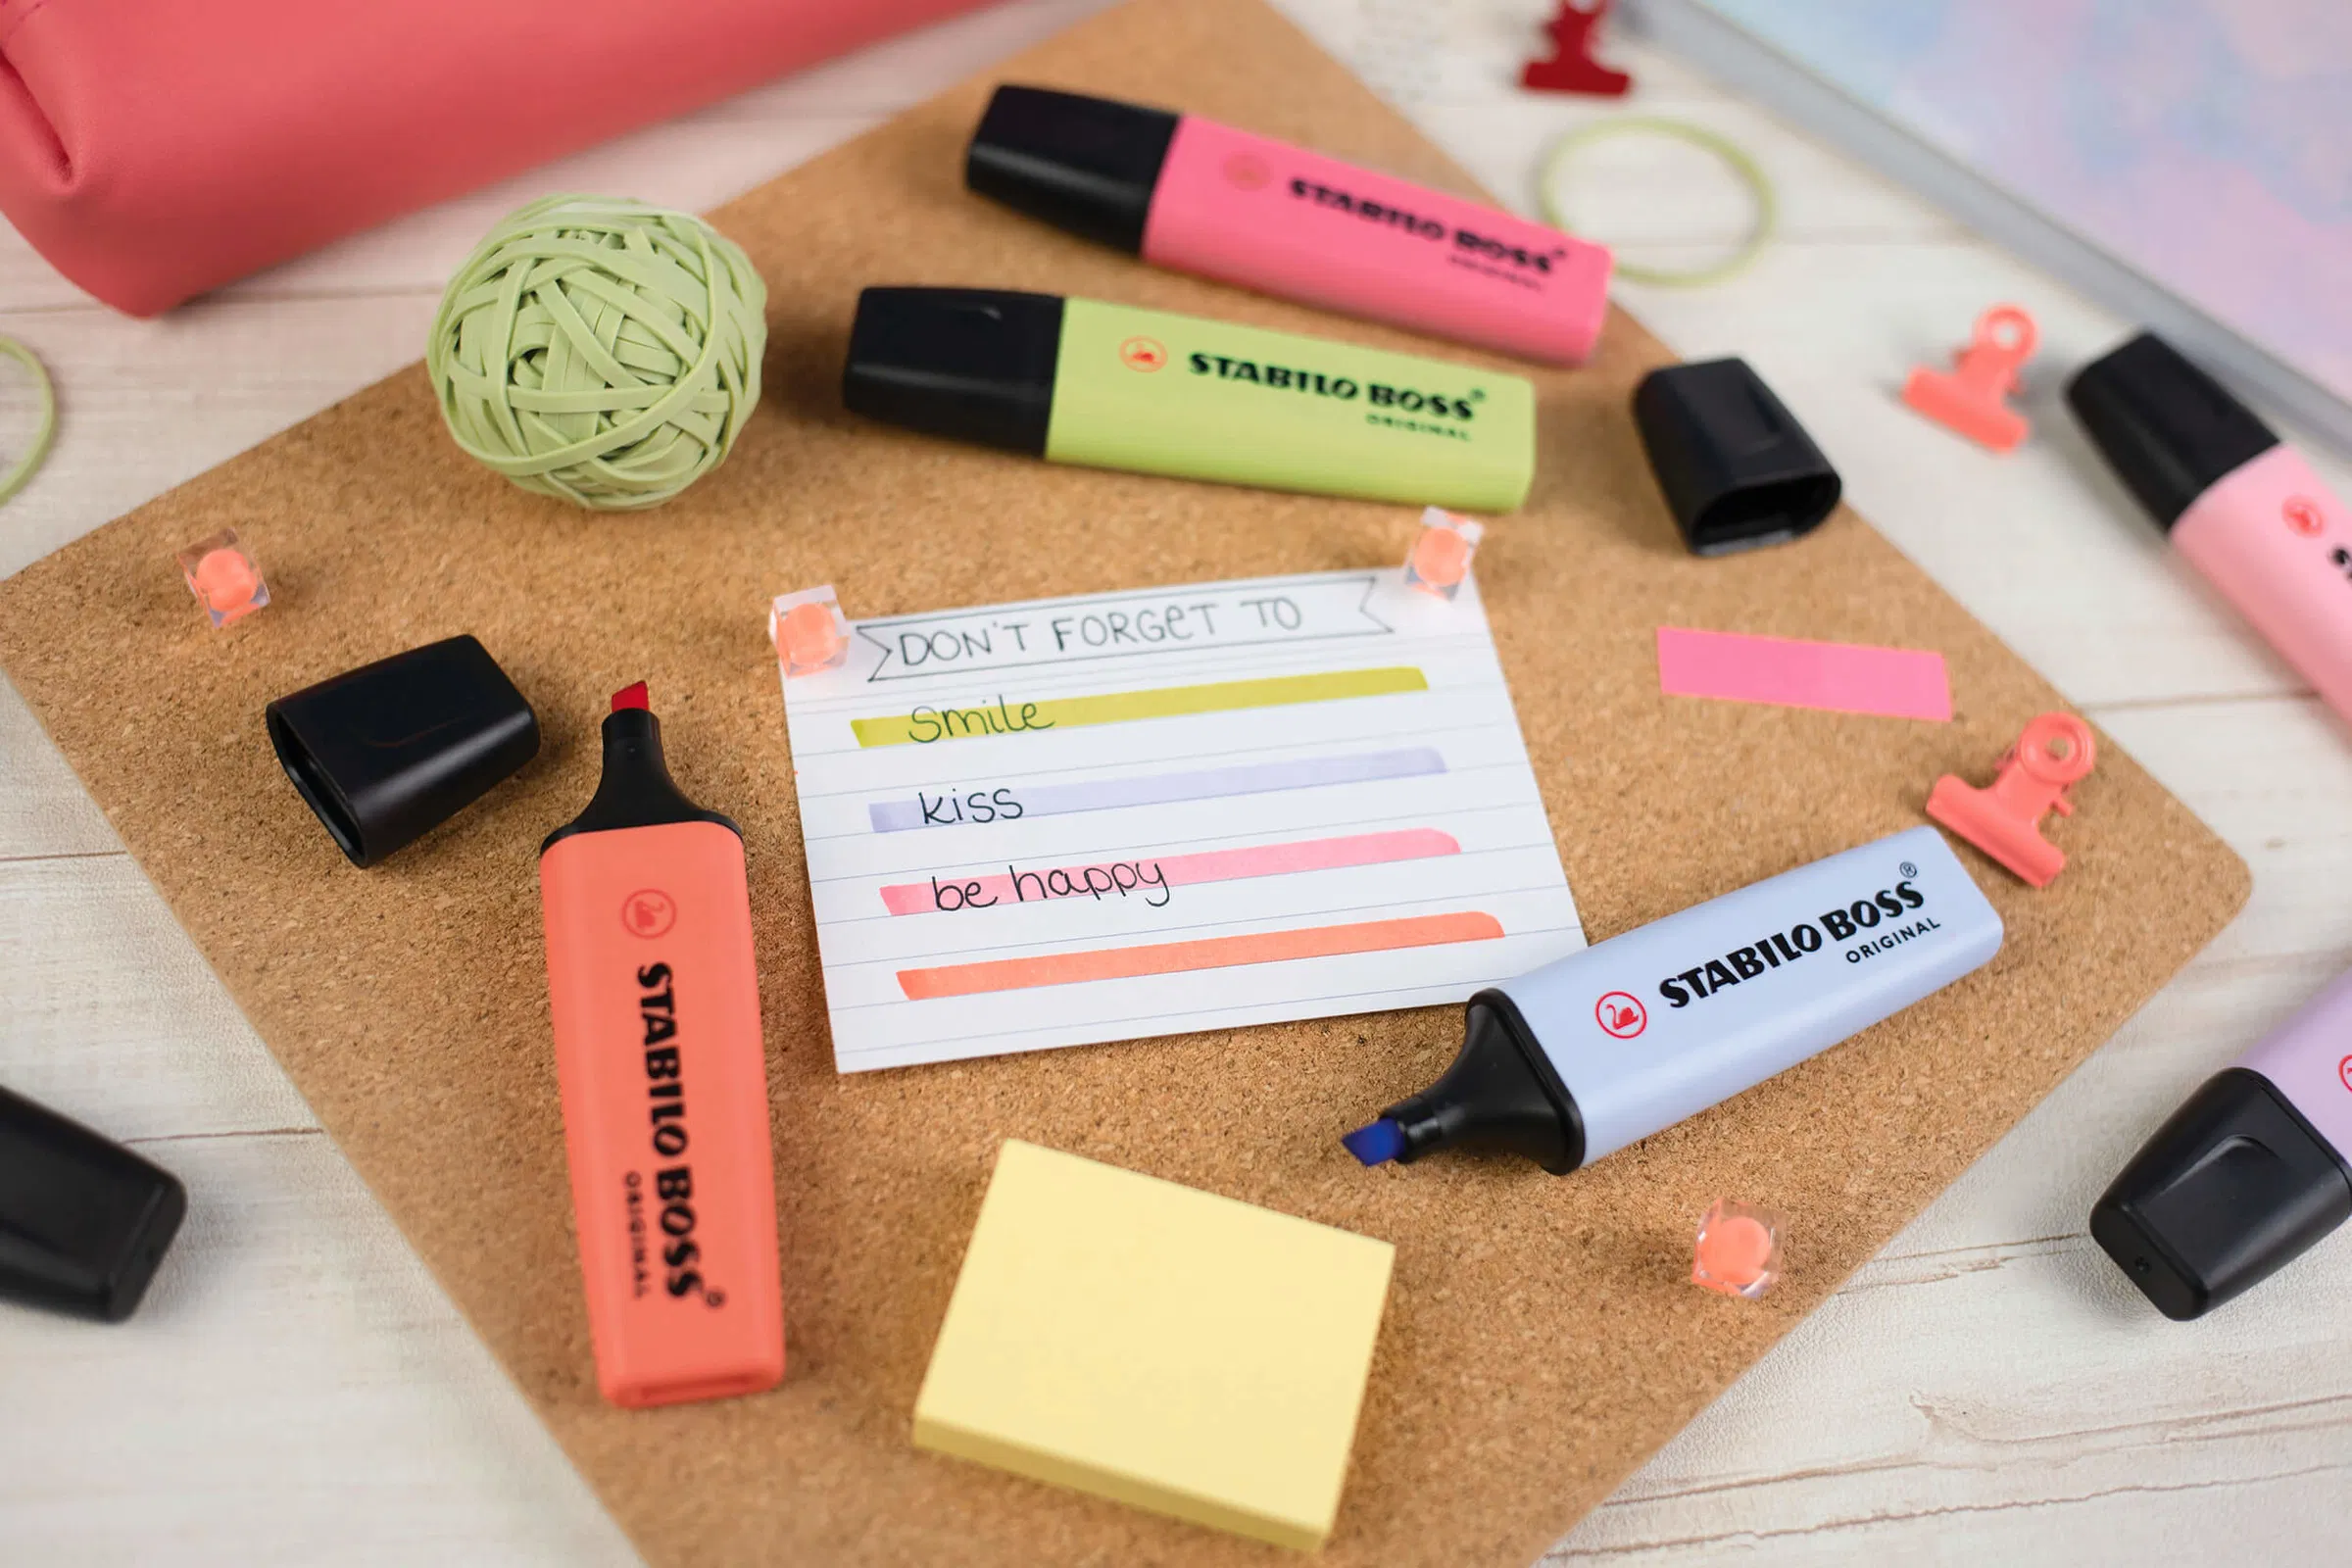 STABILO BOSS®
ORIGINAL
STABILO BOSS®
ORIGINAL
DON'T FORGET TO
smile
kiss
be happy
STABILO BOSS®
ORIGINAL
STABILO BOSS®
ORIGINAL